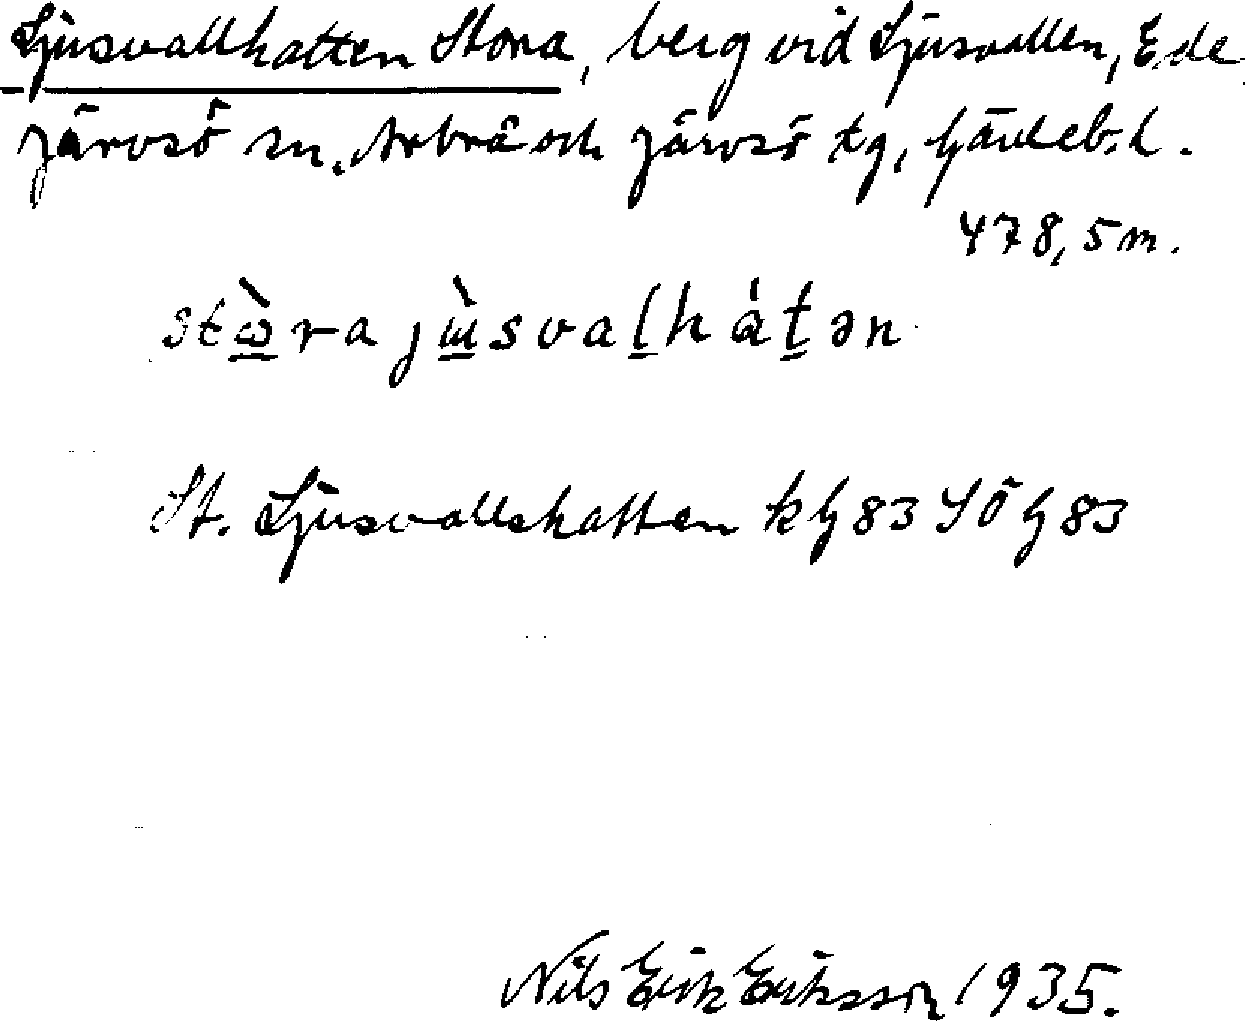 Ljusvallhatten Stora, berg vid Ljusvallen, Ede
Järvsö sn, Arbrå och Järvsö tg, Gävleb.l.
478,5 m.
stὼra jɯ̀svalhátən
St. Ljusvallshatten kG83 SÖG83
Nils Erik Eriksson 1935.